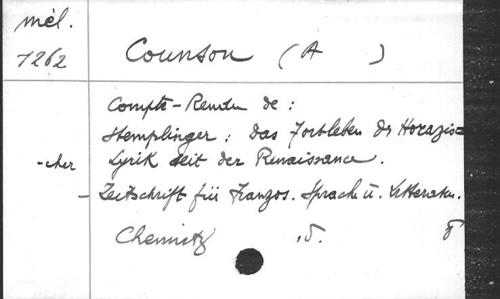 mél. 7262
Counson (A )
Compte-Rendu de :
Stemplinger : das Fortleben der Horazis=
-cher Lyrik seit der Renaissance.
- Zeitschrift für Französ. Sprache u. Litteratur.
Chemnitz